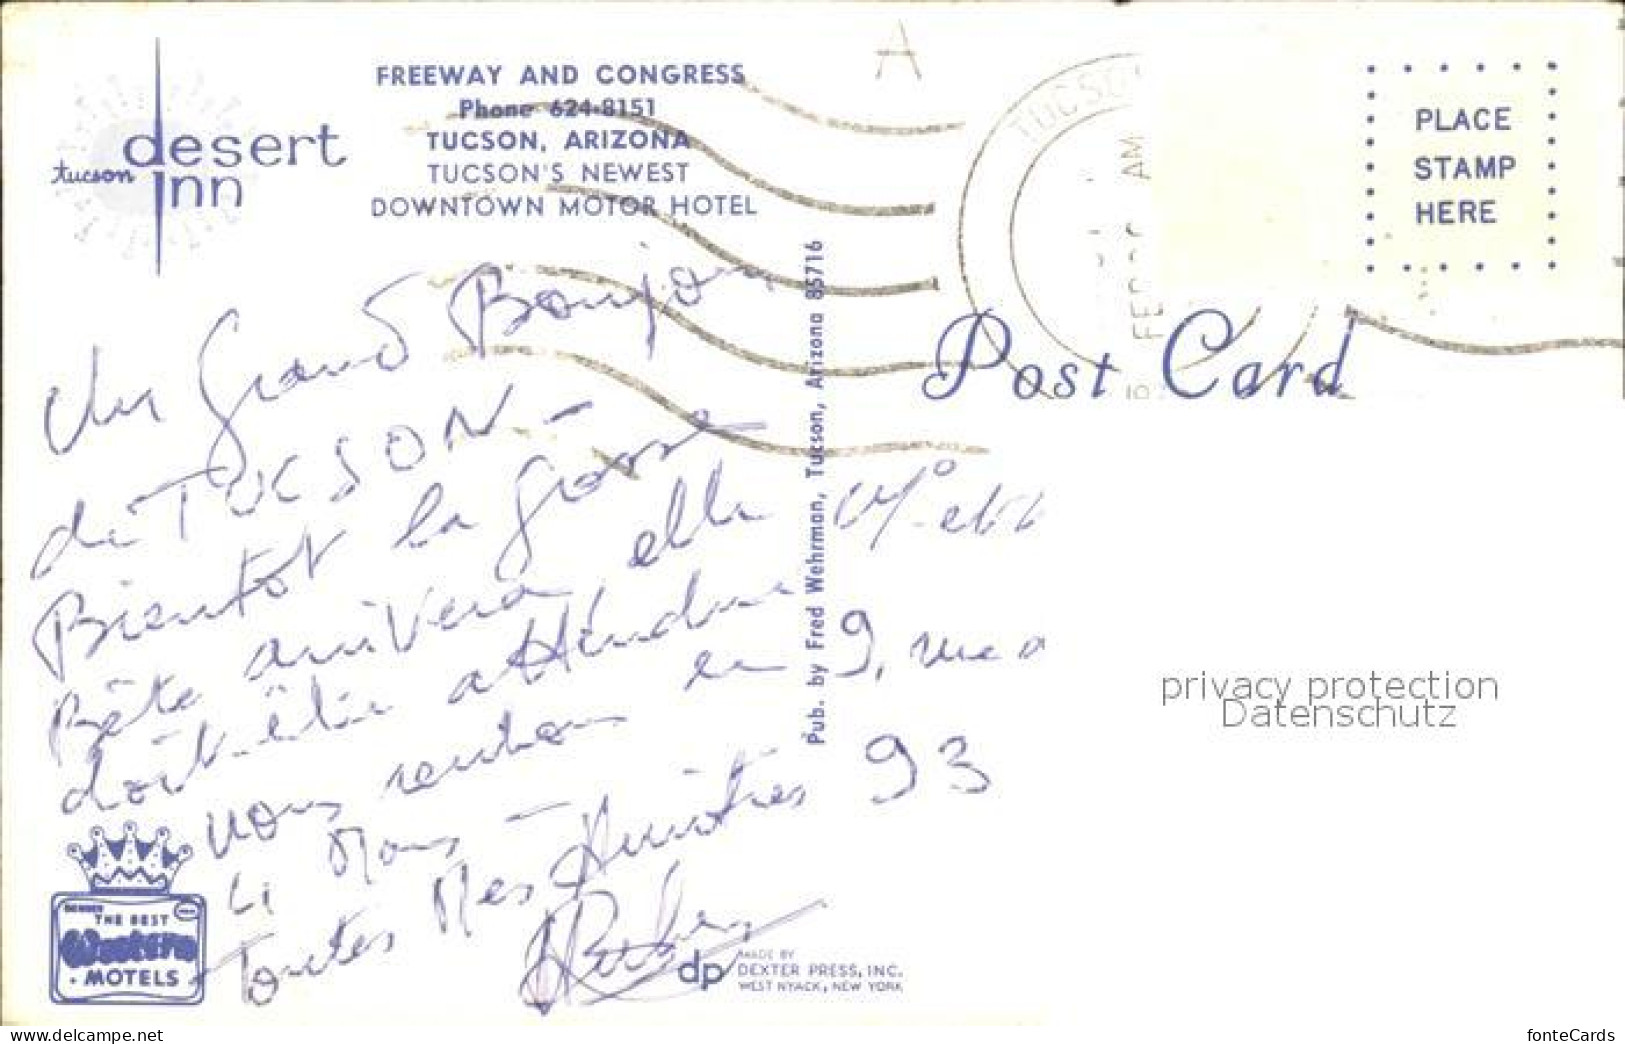 FREEWAY AND CONGRESS
Phone 624-8151
TUCSON, ARIZONA
TUCSON'S NEWEST
DOWNTOWN MOTOR HOTEL
tucson desert inn
A
TUCSO
FEB AM
PLACE
STAMP
HERE
Post Card
Un Grand Bonjou
de TUCSON -
Bientot la Grosse
Bête arrivera elle
doit attendre
nous rentrons en 9,
4 Mars -
Toutes Mes Amitiés 93
Pub. by Fred Wehrman, Tucson, Arizona 85716
THE BEST
Western
MOTELS
dp
MADE BY
DEXTER PRESS, INC.
WEST NYACK, NEW YORK
privacy protection
Datenschutz
www.delcampe.net
fonteCards